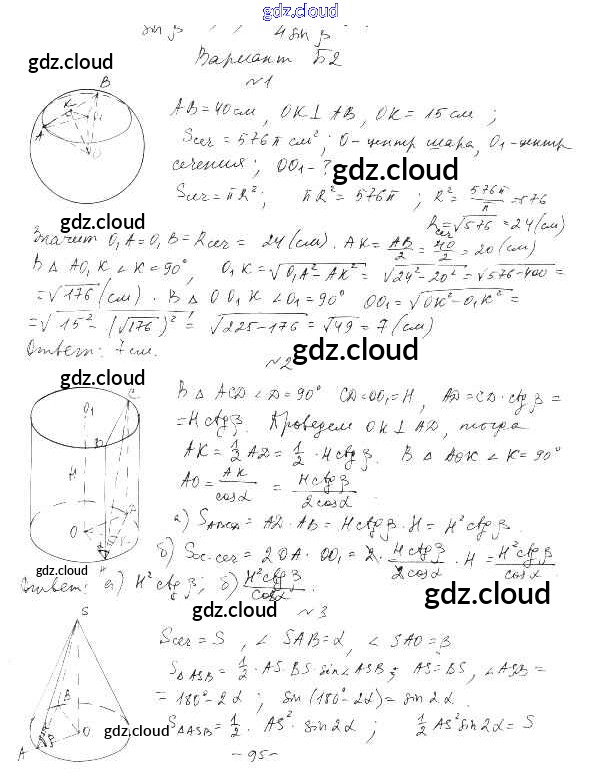 gdz.cloud
sin β 4 sin β
gdz.cloud
Вариант Б2
gdz.cloud
№1
AB = 40 см, OK ⊥ AB, OK = 15 см;
Sсеч = 576π см²; O - центр шара, O₁ - центр
сечения; OO₁ - ?
gdz.cloud
Sсеч = πR²; πR² = 576π; R² = 576π/π = 576
gdz.cloud
Rсеч = √576 = 24 (см)
Значит O₁A = O₁B = Rсеч = 24 (см). AK = AB/2 = 40/2 = 20 (см)
В Δ AO₁K ∠K = 90°, O₁K = √(O₁A² - AK²) = √(24² - 20²) = √(576 - 400) =
= √176 (см). В Δ OO₁K ∠O₁ = 90° OO₁ = √(OK² - O₁K²) =
= √(15² - (√176)²) = √(225 - 176) = √49 = 7 (см)
Ответ: 7 см.
gdz.cloud
№2
gdz.cloud
В Δ ACD ∠D = 90° CD = OO₁ = H, AD = CD · ctg β =
= H ctg β. Проведем OK ⊥ AD, тогда
AK = 1/2 AD = 1/2 · H ctg β. В Δ AOK ∠K = 90°
AO = AK/cos α = H ctg β/2 cos α
а) = AD · AB = H ctg β · H = H² ctg β.
б) Sос.сеч = 2OA · OO₁ = 2 · H ctg β/2 cos α · H = H² ctg β/cos α
gdz.cloud
Ответ: а) H² ctg β; б) H² ctg β/cos α
gdz.cloud
gdz.cloud
№3
Sсеч = S, ∠ SAB = α, ∠ SAO = β
SΔASB = 1/2 · AS · BS · sin ∠ASB; AS = BS, ∠ASB =
= 180° - 2α; sin (180° - 2α) = sin 2α.
SΔASB = 1/2 · AS² · sin 2α; 1/2 AS² sin 2α = S
gdz.cloud
gdz.cloud
- 95 -